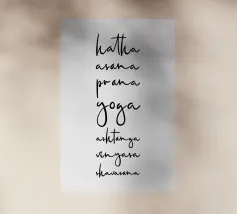 hatha
asana
prana
yoga
ashtanga
vinyasa
shavasana